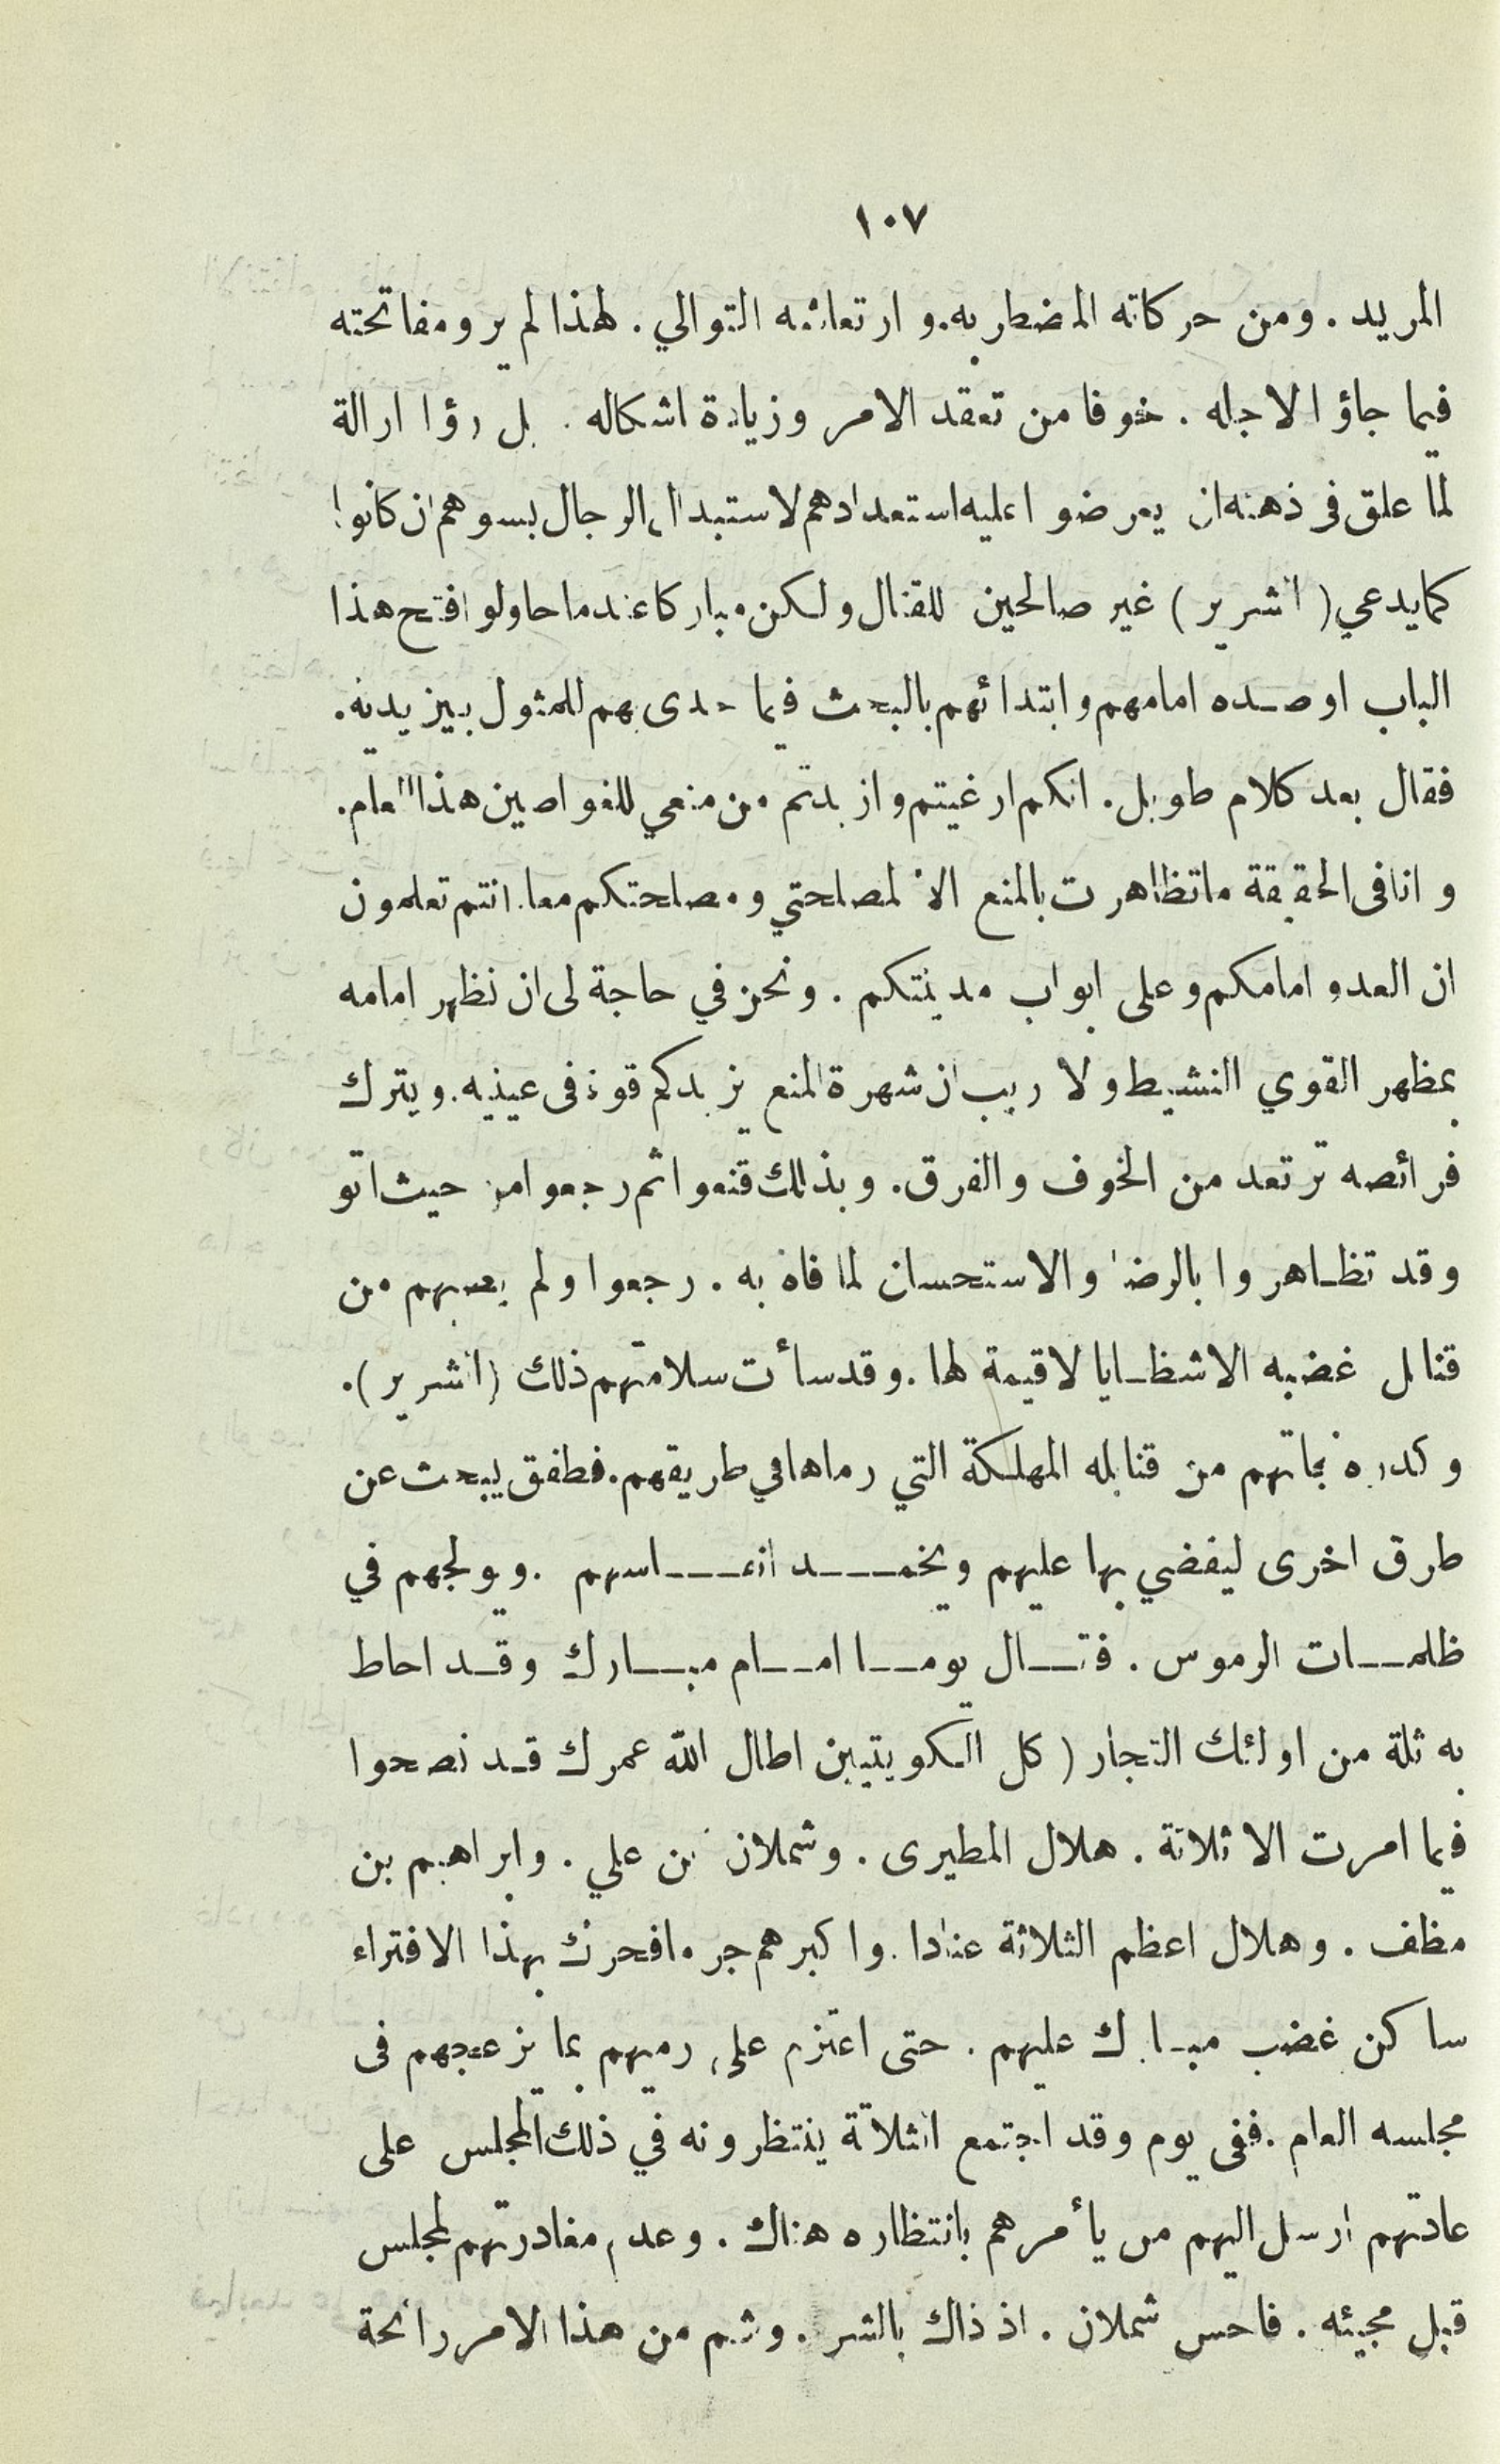 ١٠٧
المريد . ومن حركاته المضطربه . وارتعاشه التوالي . لهذا لم يرو مفاتحته
فيما جاؤا لاجله . خوفا من تعقد الامر وزيادة اشكاله . بل رؤا ازالة
لما علق في ذهنه ان يعرضوا عليه استعدادهم لاستبدال الرجال بسوهم ان كانوا
كما يدعي ( الشرير ) غير صالحين للقتال ولكن مباركا عندما حاولوا فتح هذا
الباب اوصده امامهم وابتدائهم بالبحث فيما حدى بهم للمثول بين يديه .
فقال بعد كلام طويل . انكم ارغيتم وازبدتم من منعي للغواصين هذا العام .
وانا في الحقيقة ما تظاهرت بالمنع الا لمصلحتي ومصلحتكم معا . انتم تعلمون
ان العدو امامكم وعلى ابواب مدينتكم . ونحن في حاجة لى ان نظهر امامه
بمظهر القوي النشيط ولا ريب ان شهرة المنع يزيدكم قوة في عينيه . ويترك
فرائصه ترتعد من الخوف والفرق . وبذلك قنعوا ثم رجعوا من حيث اتو
وقد تظاهروا بالرضا والاستحسان لما فاه به . رجعوا ولم يصبهم من
قنابل غضبه الا شظايا لا قيمة لها . وقد سأت سلامتهم ذلك ( الشرير ) .
وكدره نجاتهم من قنابله المهلكة التي رماها في طريقهم . فطفق يبحث عن
طرق اخرى ليفضي بها عليهم ويخمد انفاسهم . ويولجهم في
ظلمات الرموس . فقال يوما امام مبارك وقد احاط
به ثلة من اولئك التجار ( كل الكويتيين اطال الله عمرك قد نصحوا
فيما امرت الا ثلاثة . هلال المطيرى . وشملان بن علي . وابراهيم بن
مظف . وهلال اعظم الثلاثة عنادا . واكبرهم جرما فحرك بهذا الافتراء
ساكن غضب مبارك عليهم . حتى اعتزم على رميهم بما يزعجهم في
مجلسه العام . ففي يوم وقد اجتمع الثلاثة ينتظرونه في ذلك المجلس على
عادتهم ارسل اليهم من يأمرهم بانتظاره هناك . وعدم مغادرتهم لمجلس
قبل مجيئه . فاحس شملان . اذ ذاك بالشر . وشم من هذا الامر رائحة